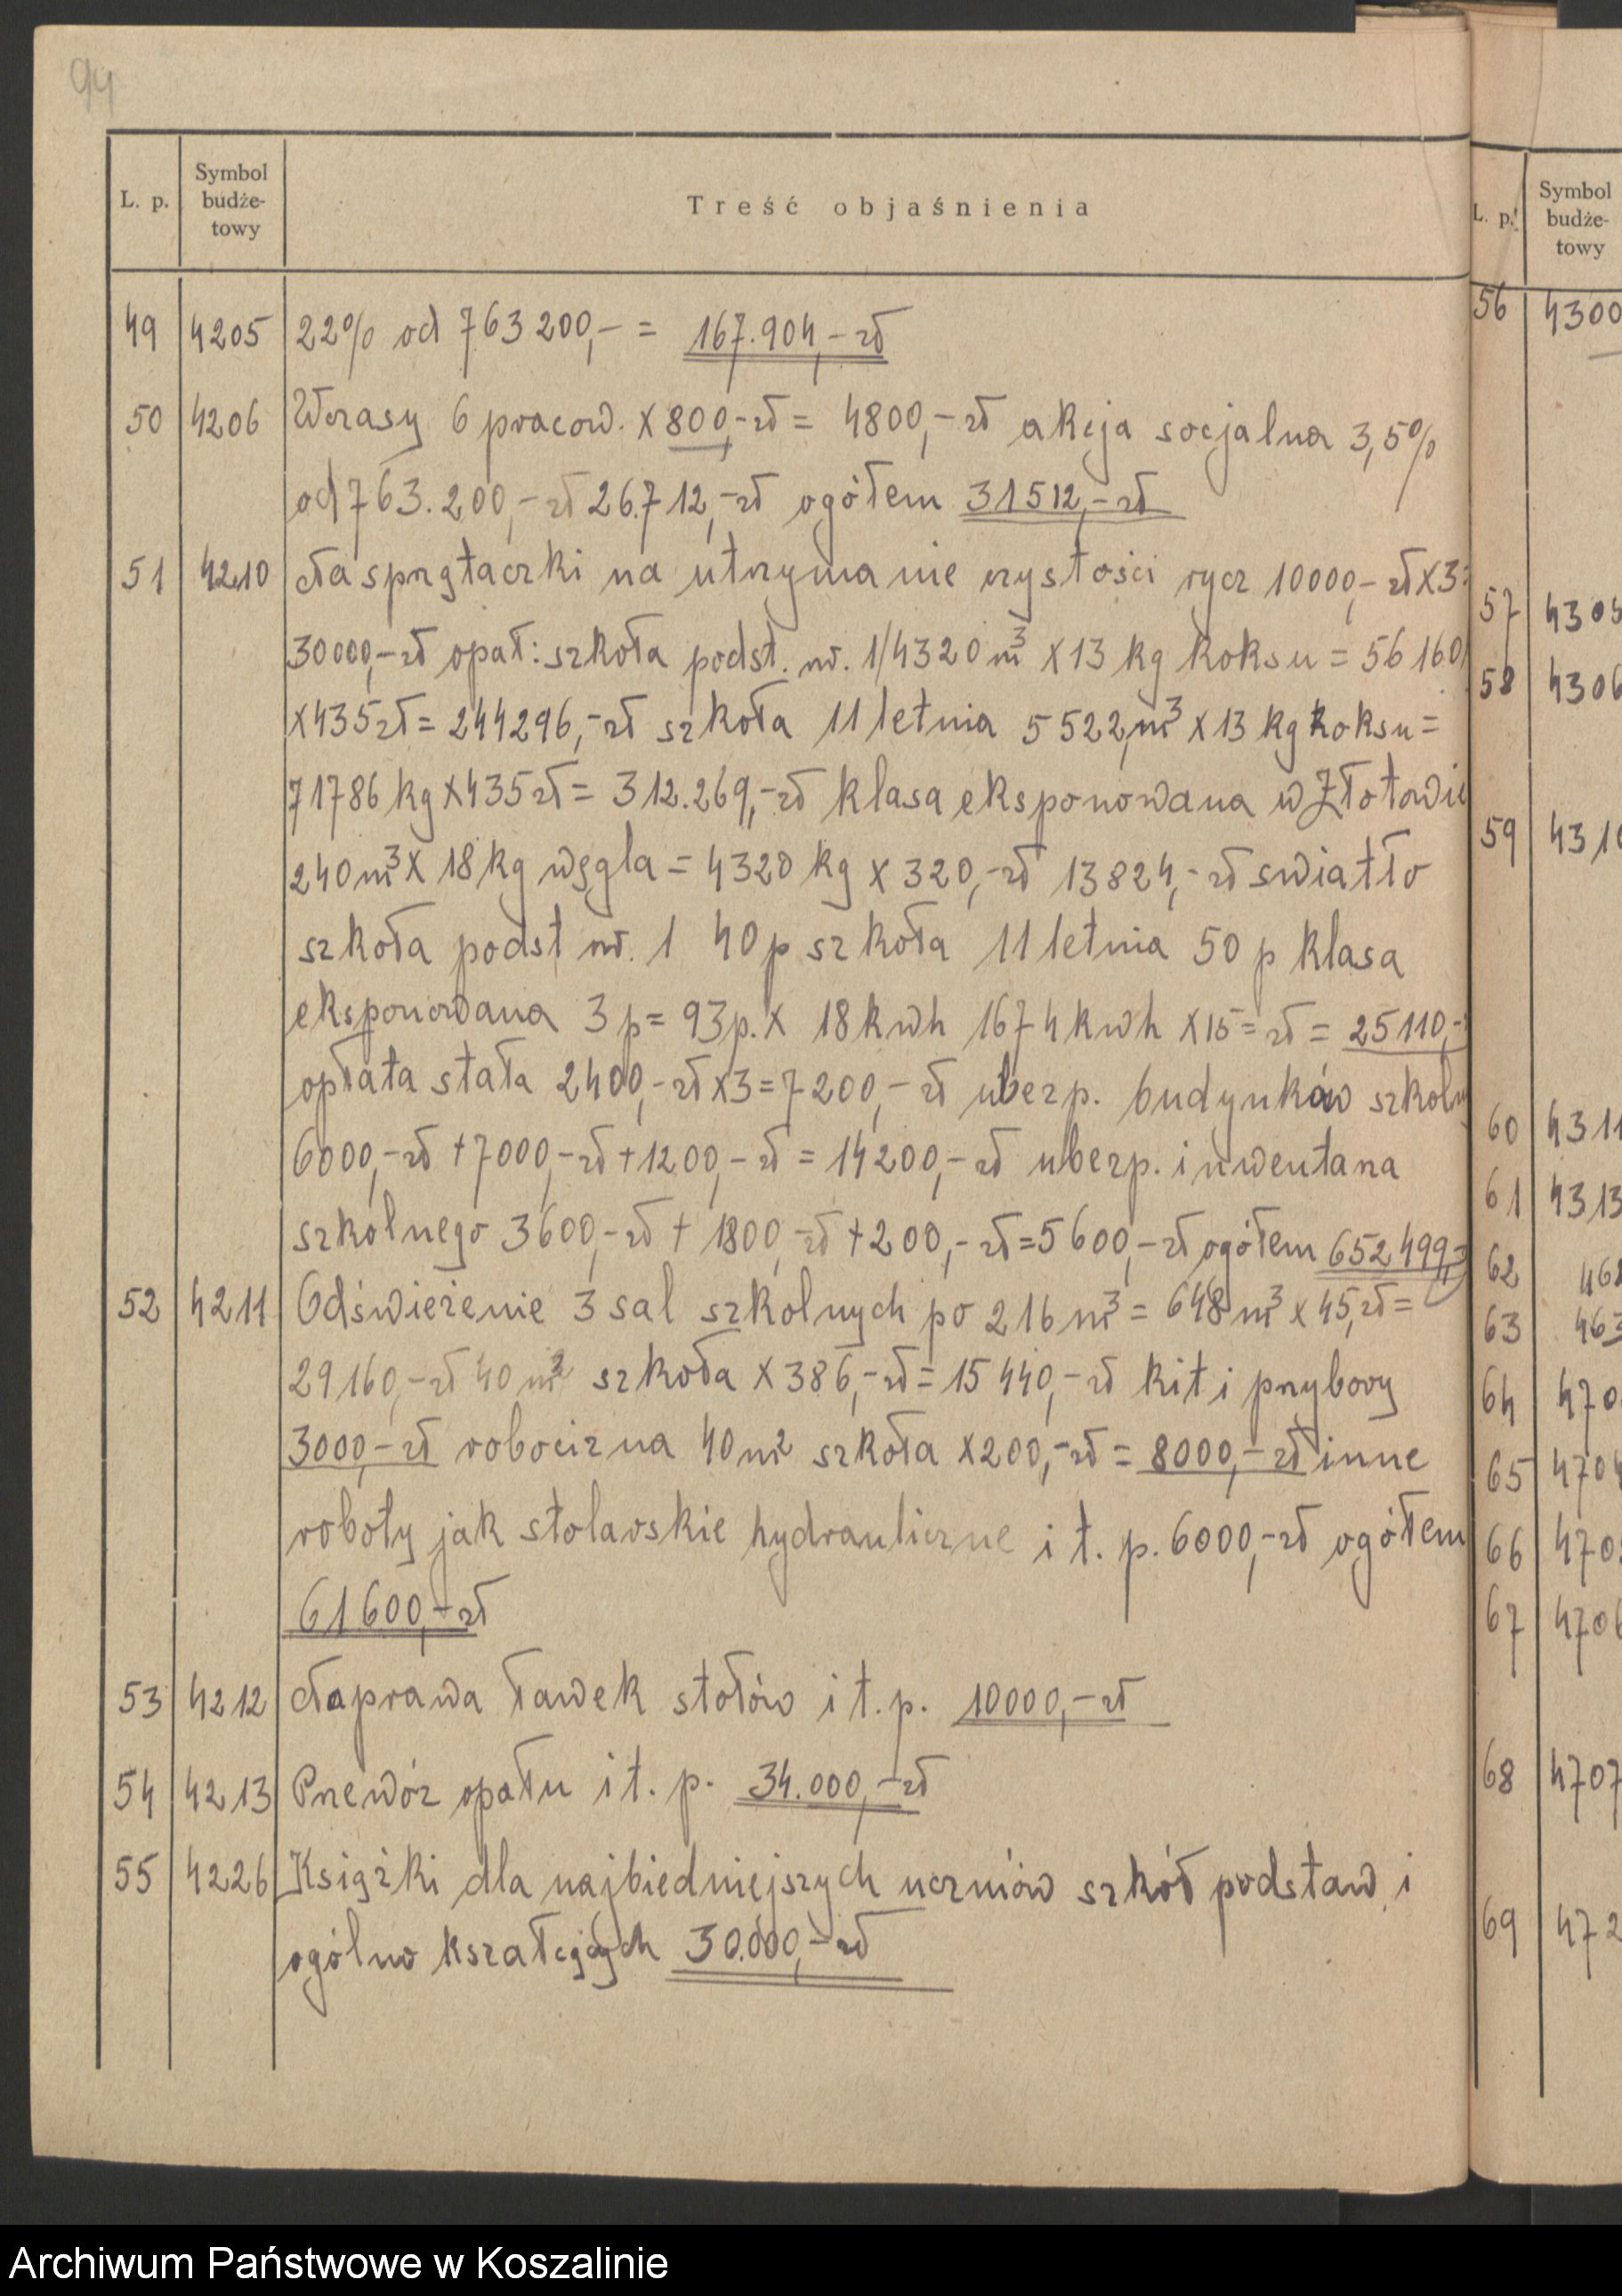 94
L. p. Symbol budże- towy Treść objaśnienia
49 4205 22% od 763 200,- = 167.904,- zł
50 4206 Wczasy 6 pracow. x 800,- zł = 4800,- zł akcja socjalna 3,5%
od 763.200,- zł 26.712,- zł ogółem 31512,- zł
51 4210 dla sprzątaczki na utrzymanie czystości rycz 10000,- zł x 3 =
30000,- zł opał: szkoła podst. nr. 1/4320 m³ x 13 kg koksu = 56160
x 435 zł = 244296,- zł szkoła 11 letnia 5522 m³ x 13 kg koksu =
71786 kg x 435 zł = 312.269,- zł klasa eksponowana w Złotowie
240 m³ x 18 kg węgla = 4320 kg x 320,- zł 13824,- zł swiatło
szkoła podst nr. 1 40 p szkoła 11 letnia 50 p klasa
eksponowana 3 p = 93 p. x 18 kwh 1674 kwh x 15 = zł = 25110,-
opłata stała 2400,- zł x 3 = 7200,- zł ubezp. budynków szkoln
6000,- zł + 7000,- zł + 1200,- zł = 14200,- zł ubezp. inwentarza
szkolnego 3600,- zł + 1800,- zł + 200,- zł = 5600,- zł ogółem 652499,-
52 4211 Odświeżenie 3 sal szkolnych po 216 m³ = 648 m³ x 45, zł =
29160,- zł 40 m² szkoła x 386,- zł = 15440,- zł kit i przybory
3000,- zł robocizna 40 m² szkoła x 200,- zł = 8000,- zł inne
roboty jak stolarskie hydrauliczne i t. p. 6000,- zł ogółem
61600,- zł
53 4212 Naprawa ławek stołów i t. p. 10000,- zł
54 4213 Przewóz opału i t. p. 34.000,- zł
55 4226 Książki dla najbiedniejszych uczniów szkół podstaw. i
ogólno kszałcących 30.000,- zł
L. p. Symbol budże- towy
56 4300
57
58 4306
59
60 4311
61 4313
62
63
64
65
66
67
68 4707
69
Archiwum Państwowe w Koszalinie